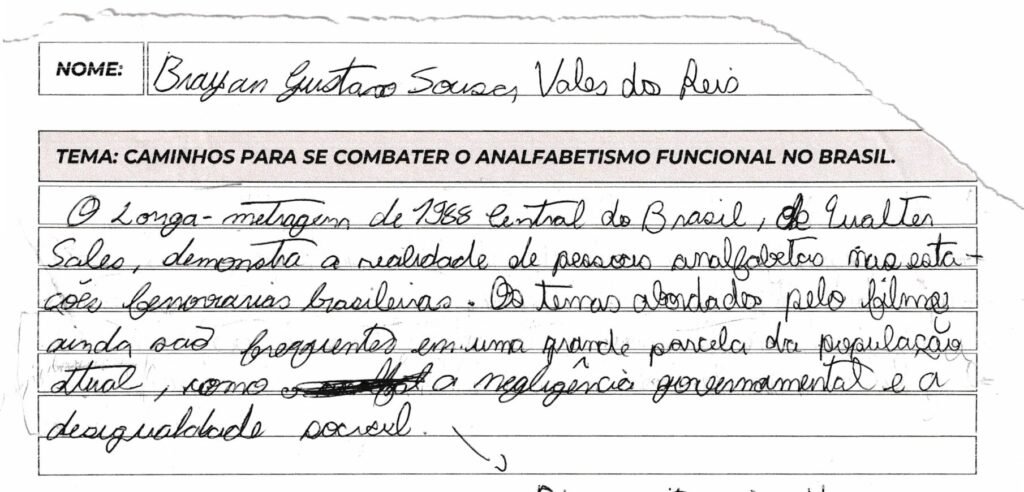 NOME: Brayan Gustavo Sousa, Vales do Reis
TEMA: CAMINHOS PARA SE COMBATER O ANALFABETISMO FUNCIONAL NO BRASIL.
O Longa-metragem de 1988 Central do Brasil, de Walter
Sales, demonstra a realidade de pessoas analfabetas nas esta-
ções ferroviarias brasileiras. Os temas abordados pelo filme
ainda são frequentes em uma grande parcela da população
atual, como a negligência governamental e a
desigualdade social.